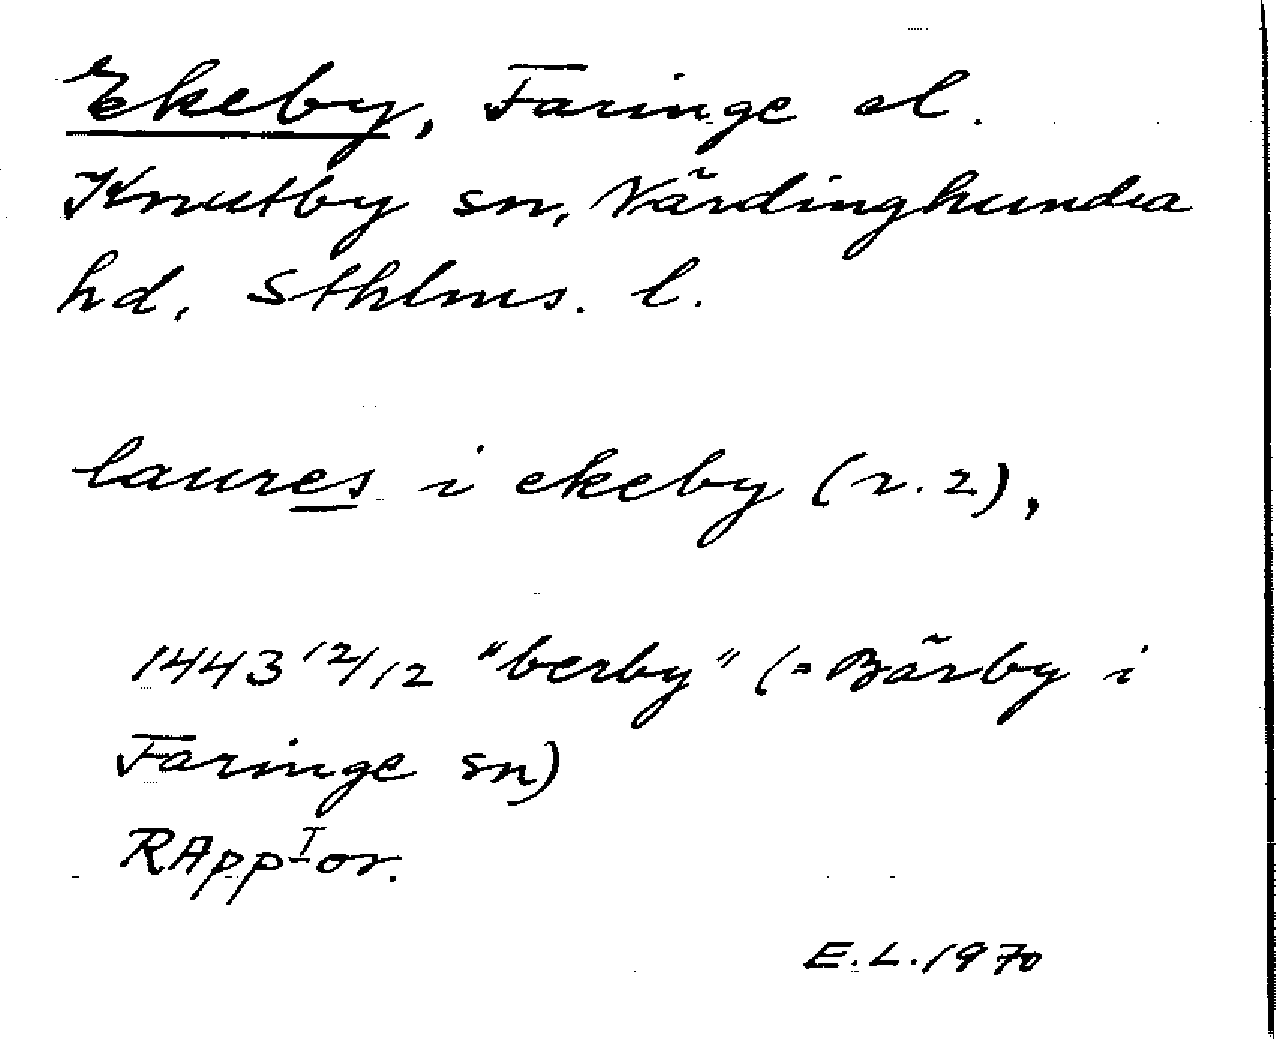 Ekeby, Faringe el.
Knutby sn, Närdinghundra
hd, Sthlms. l.
laures i ekeby (r. 2),
1443 12/12 "berby" (= Bärby i
Faringe sn)
RApp I or.
E.L. 1970